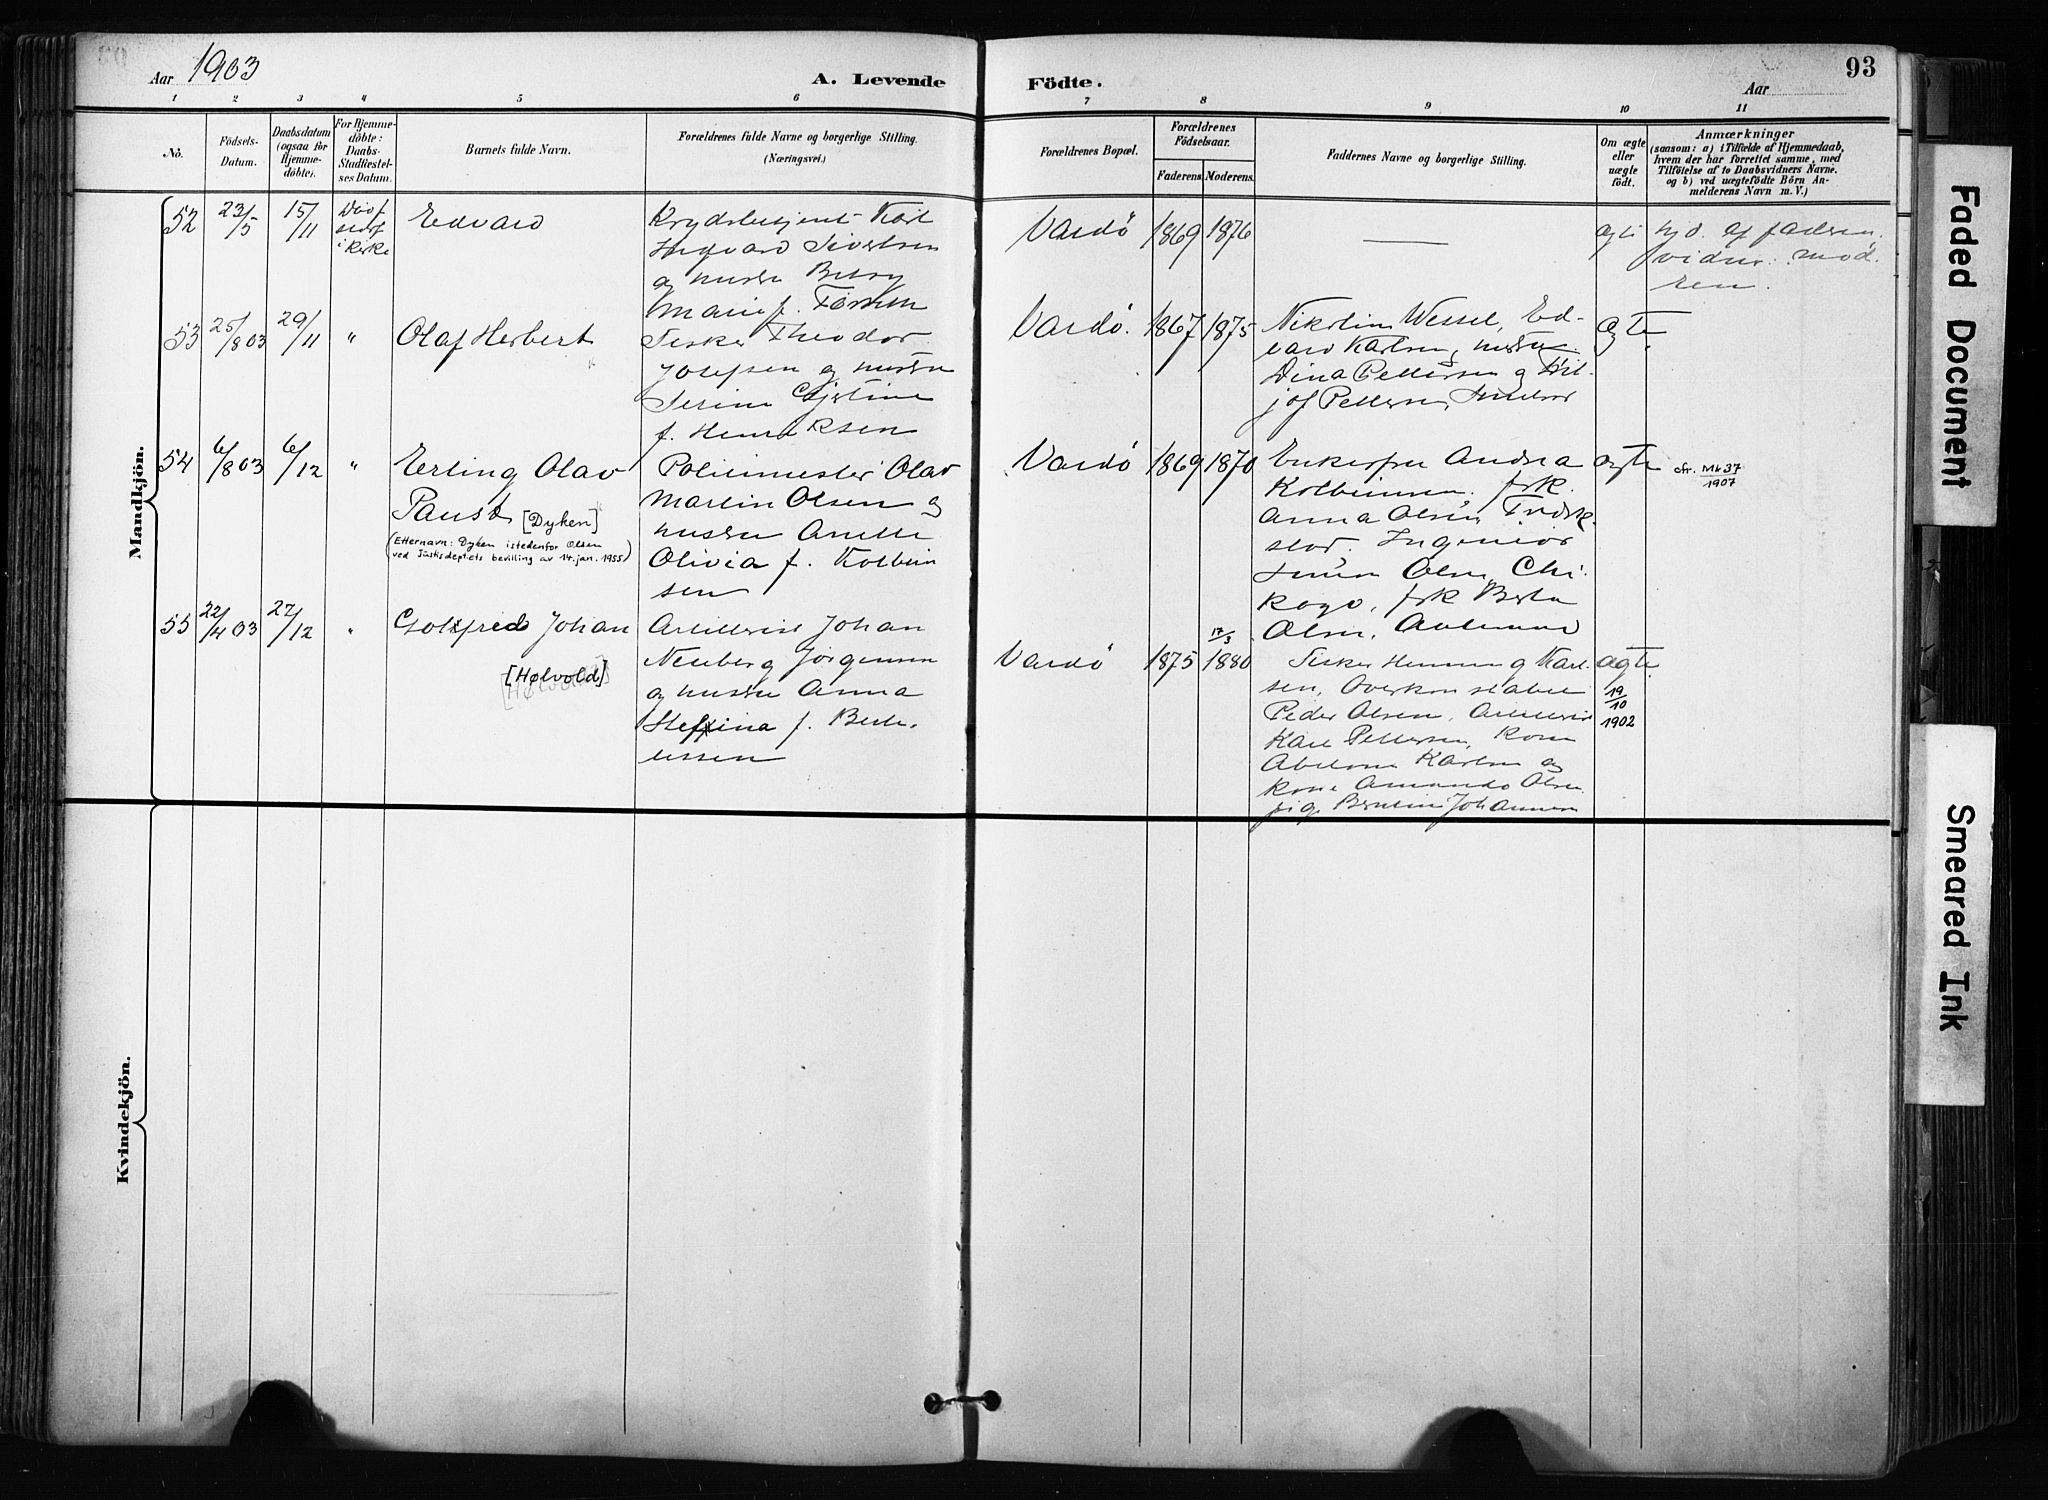 Aar 1903
A. Levende Födte.
Aar
93
1 2 3 4 5 6 7 8 9 10 11
No.
Födsels-
Datum.
Daabsdatum
(ogsaa for
Hjemme-
döbte).
For Hjemme-
döbte:
Daabs-
Stadfæstel-
ses Datum.
Barnets fulde Navn.
Forældrenes fulde Navne og borgerlige Stilling.
(Næringsvei.)
Forældrenes Bopæl.
Forældrenes
Födselsaar.
Faderens. Moderens.
Faddernes Navne og borgerlige Stilling.
Om ægte
eller
uægte
födt.
Anmærkninger
(saasom: a) i Tilfælde af Hjemmedaab,
hvem der har forrettet samme, med
Tilföielse af to Daabsvidners Navne,
og b) ved uægtefödte Börn An-
melderens Navn m. V.)
Mandkjön.
52 23/5 15/11
i Kirke
Edvard
Karl
Ingvard Sivertsen
og hustru Betsy
Marie f.
Vardø 1869 1876
ægte
af faderen.
mod.
ren.
53 25/8 03 29/11 "
Olaf Herbert
Fisker Theodor
Josefsen og hustru
Serine
f. Henriksen
Vardø. 1867 1875
Nikolin Wessel, Ed-
vard Karlsen, hustru
Dina Pettersen og
Pettersen,
ægte
54 6/8 03 6/12 "
Erling Olav
Paust [Dyken]
(Etternavn: Dyken istedenfor Olsen
ved Justisdeptets bevilling av 14. jan. 1955)
Politimester Olav
Martin Olsen og
hustru Anette
Olivia f. Kolbein
sen
Vardø 1869 1870
Enkefru Andrea
Kolbeinsen, frk.
Anna Olsen,
Ingeniør
Olsen, Chi-
kago, frk Berta
Olsen,
ægte
cfr. Mk 37
1907
55 22/4 03 27/12 "
Gotfred Johan
[Hølvold]
Artillerist Johan
Neuberg Jørgensen
og hustru Anna
Steffina f. Bert-
eussen
Vardø 1875 17/3 1880
Fisker Henning Karl-
sen, Overkonstabel
Peder Olsen, Artillerist
Karl Pettersen, Kone
Abelone Karlsen og
kone Amanda Olsen
pige Berntine Johannesen
ægte
19/10
1902
Kvindekjön.
Faded Document
Smeared Ink